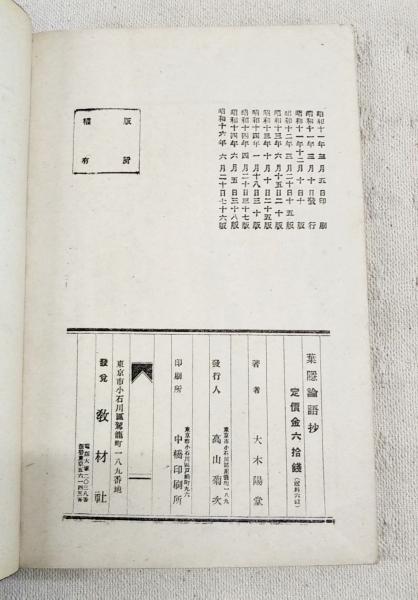 昭和十一年三月五日印刷
昭和十一年三月十日發行
昭和十一年十二月十日十版
昭和十二年三月二十日十五版
昭和十三年六月十五日二十版
昭和十三年十月十日二十五版
昭和十四年一月十八日三十版
昭和十四年四月二十日三十七版
昭和十四年六月五日三十八版
昭和十六年六月二十日七十六版
版權
所有
葉隱論語抄
定價金六拾錢
著者 大木陽堂
發行人 高山菊次
印刷所 中橋印刷所
東京市小石川區駕籠町一八九番地
發兌 教材社